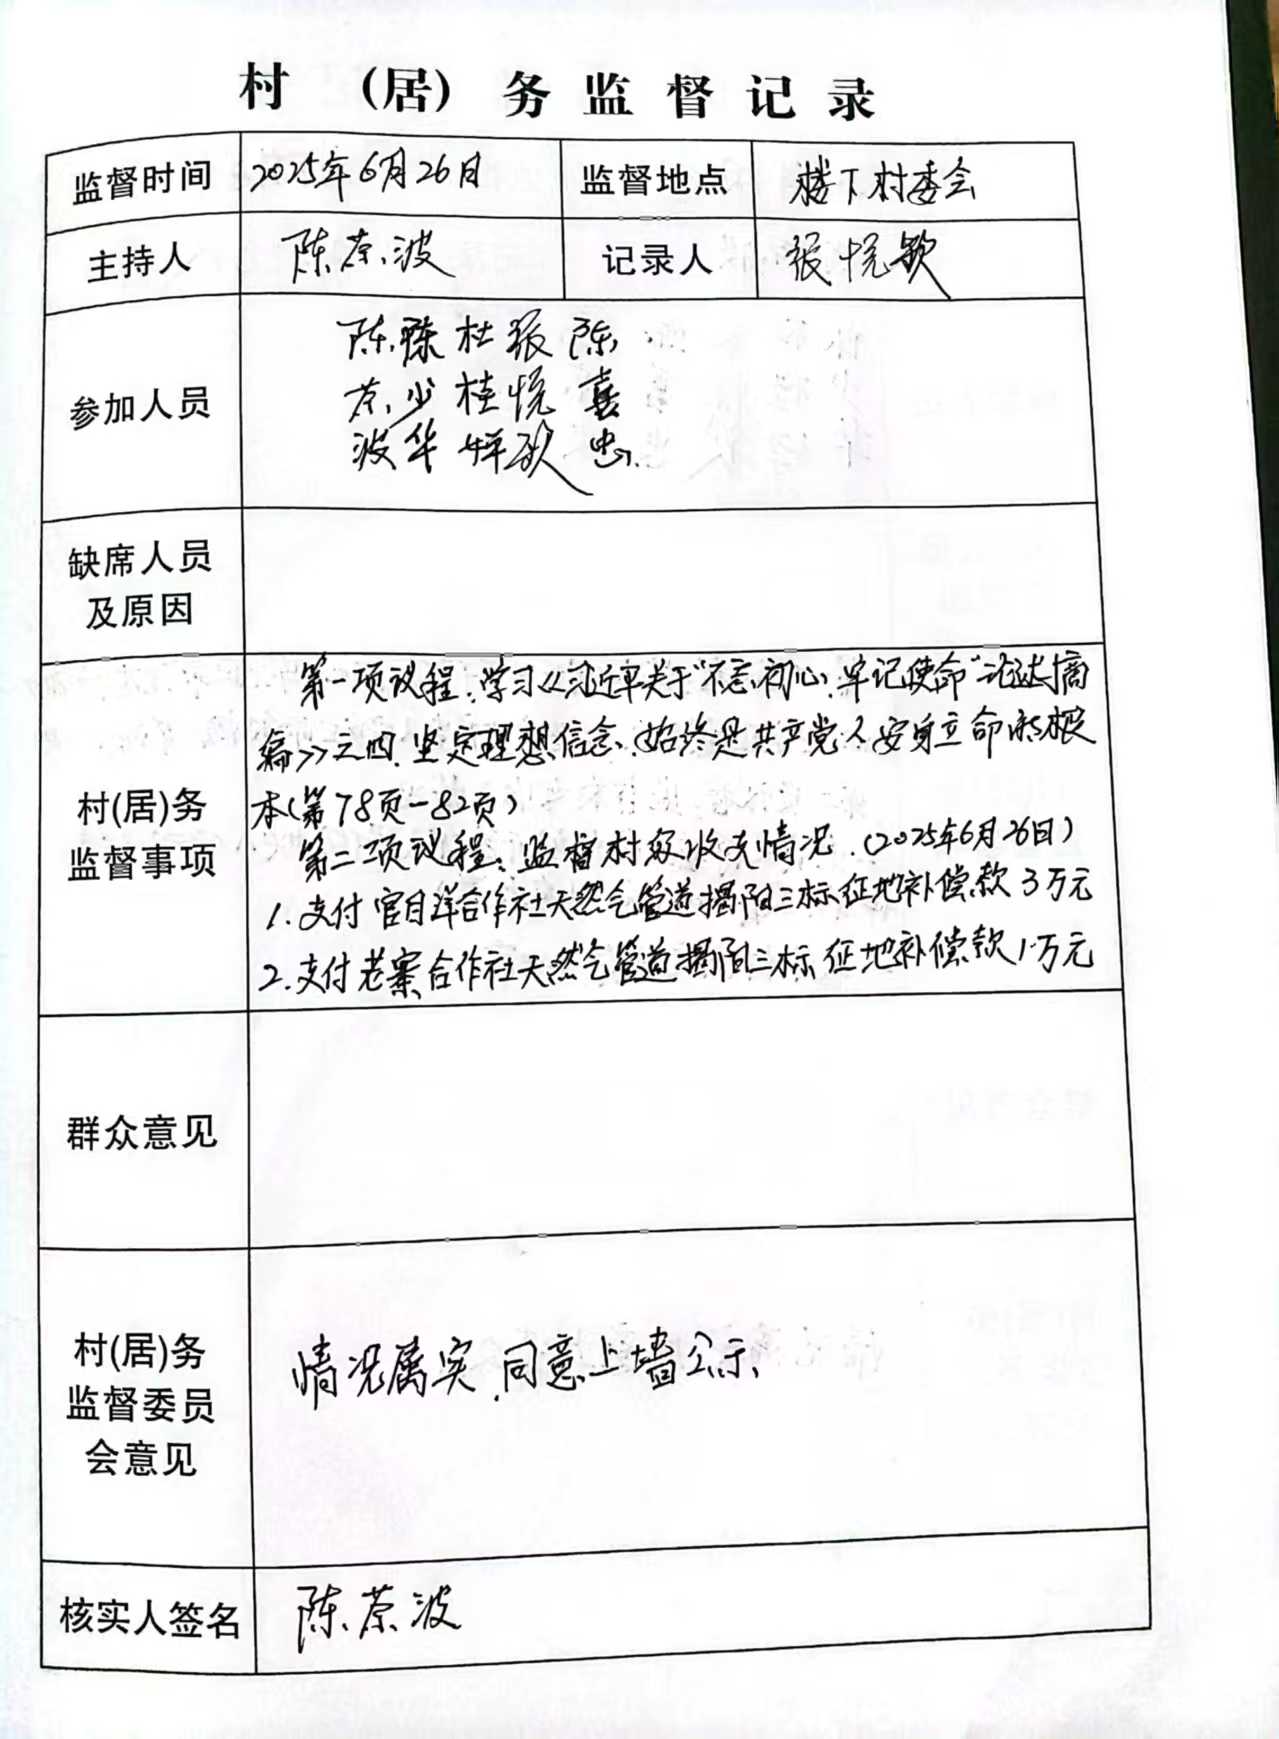 村 (居) 务监督记录
监督时间 2025年6月26日 监督地点 楼下村委会
主持人 陈荣波 记录人 张悦歆
参加人员
陈 陈 杜 张 陈
荣 少 桂 悦 喜
波 华 婵 歆 忠
缺席人员
及原因
村(居)务
监督事项
第一项议程:学习《习近平关于"不忘初心、牢记使命"论述摘
篇》之四、坚定理想信念、始终是共产党人安身立命的根
本(第78页-82页)
第二项议程:监督村级收支情况.(2025年6月26日)
1.支付官目洋合作社天然气管道揭阳三标征地补偿款3万元
2.支付老寨合作社天然气管道揭阳三标征地补偿款1万元
群众意见
村(居)务
监督委员
会意见
情况属实.同意上墙公示
核实人签名 陈荣波